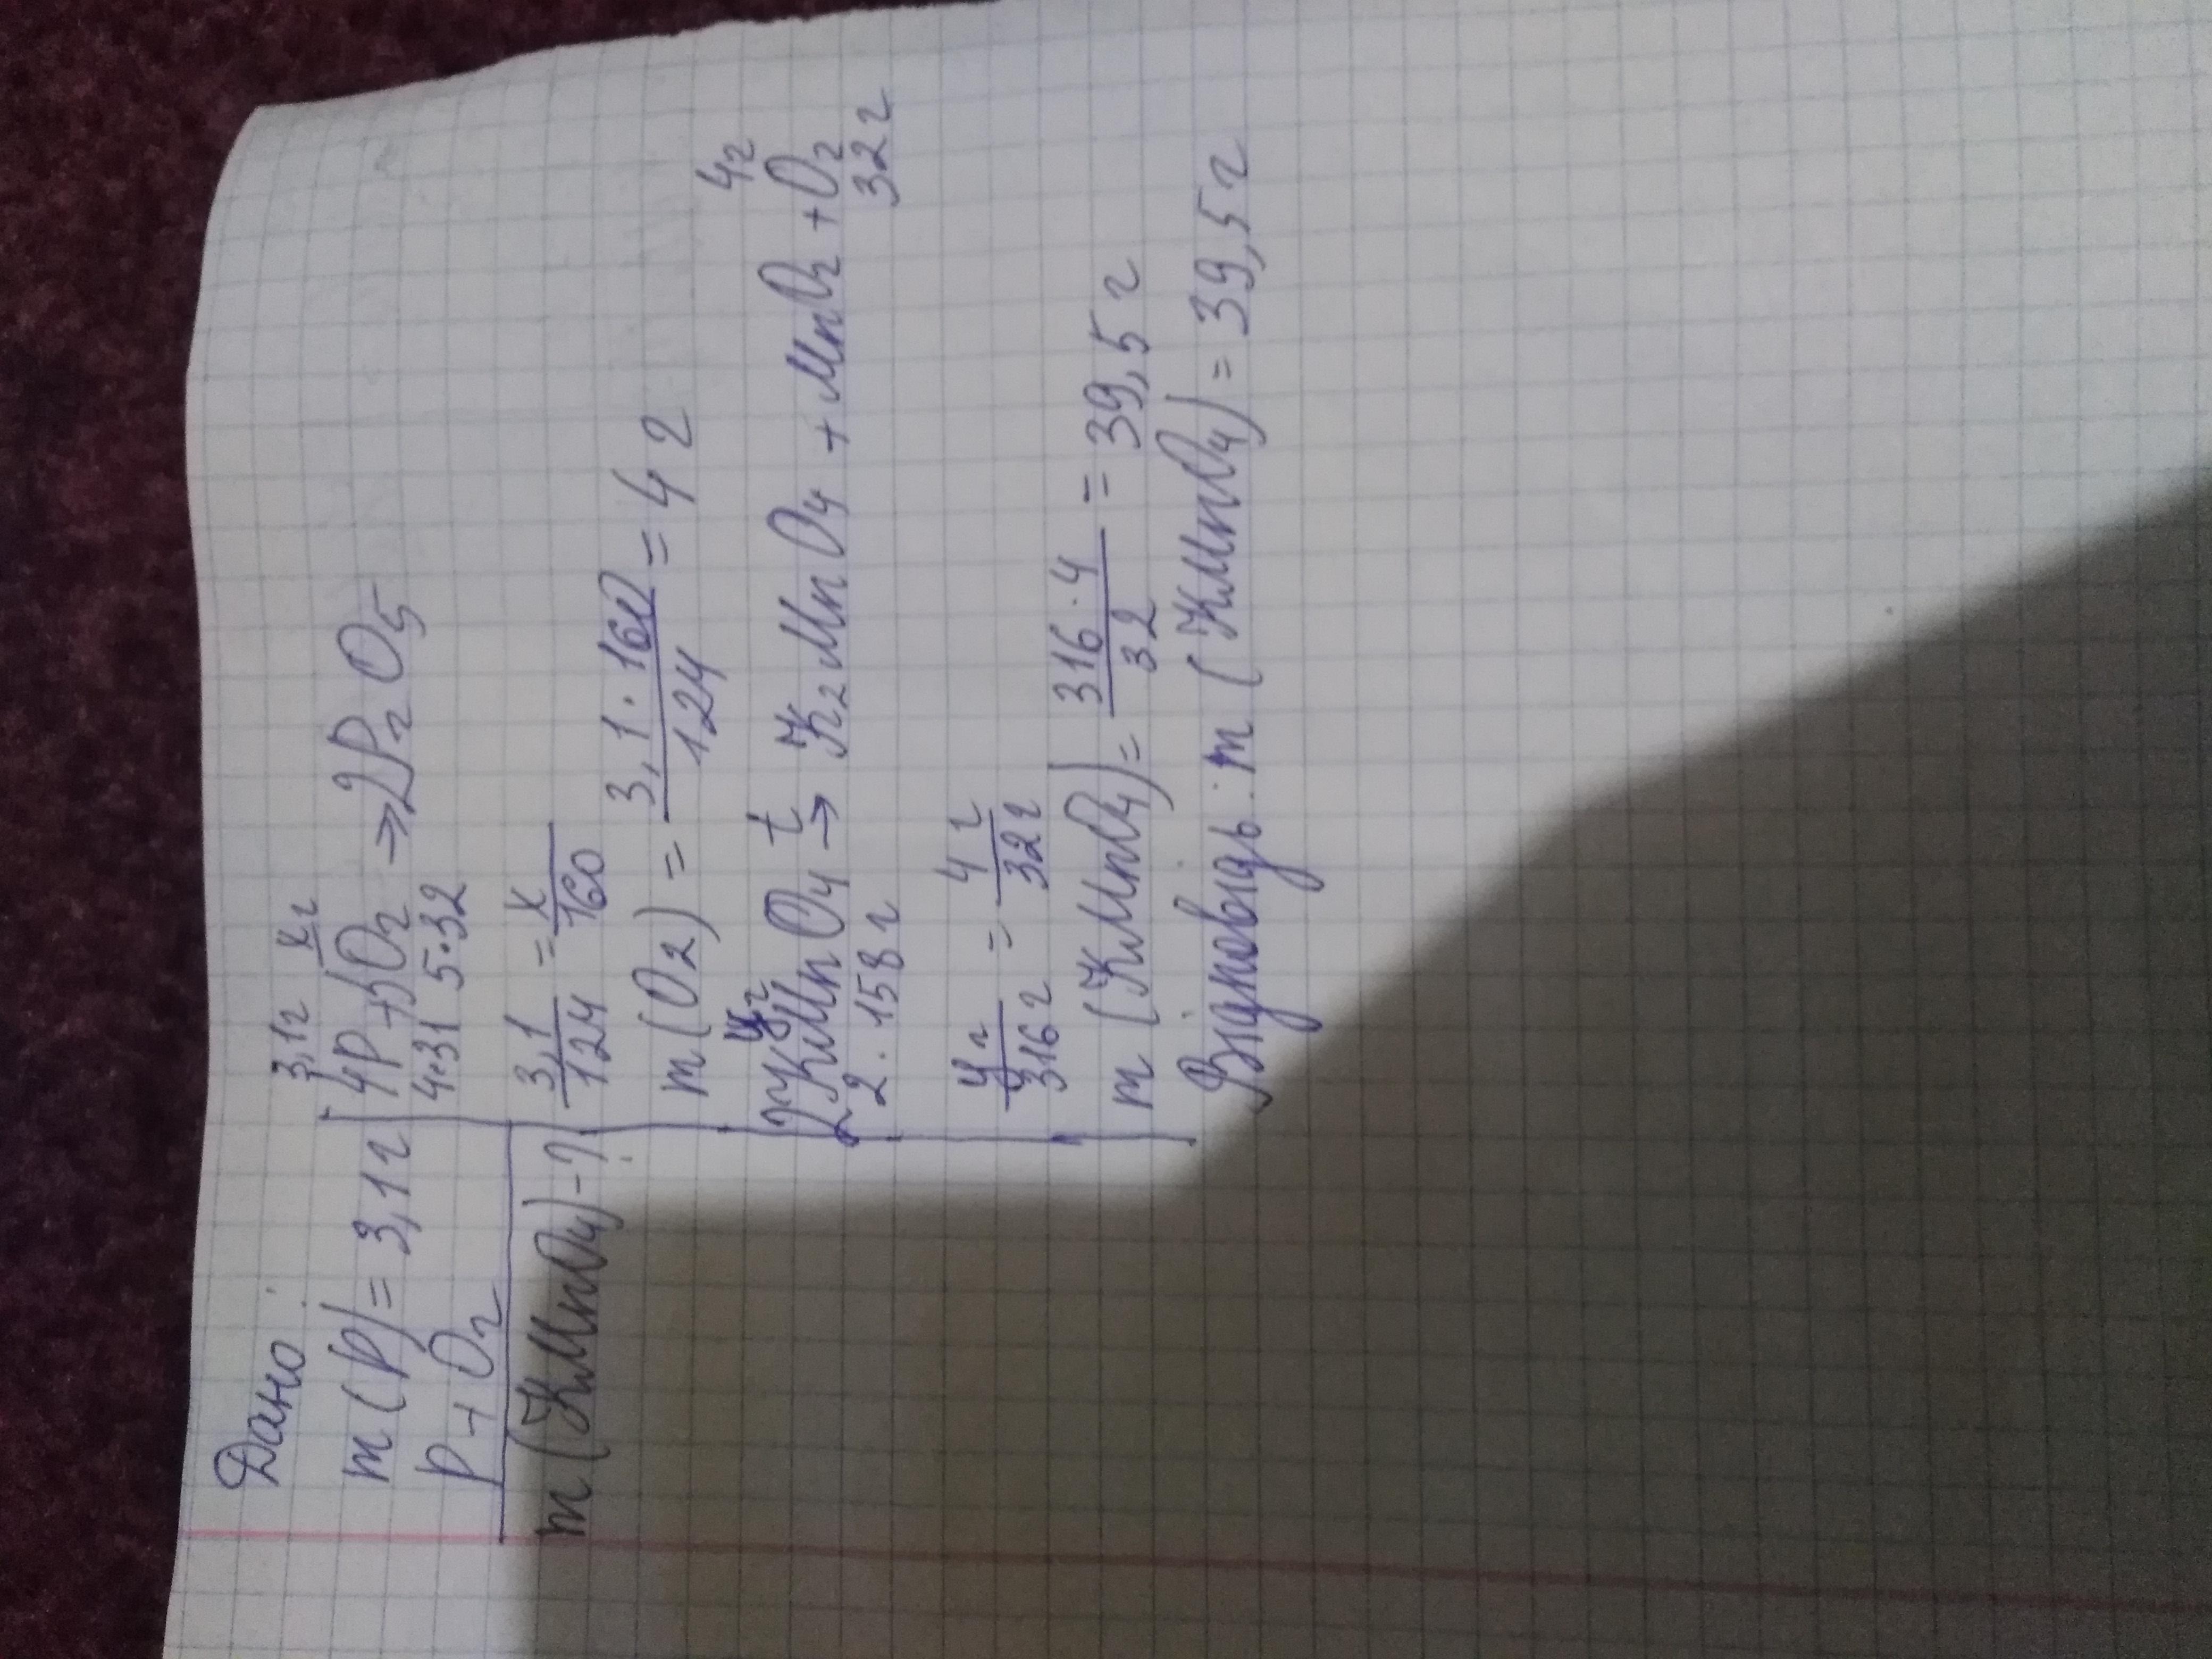 Дано:
m(P)=3,1г
P+O₂
m(KMnO₄)-?
3,1г xг
4P+5O₂→2P₂O₅
4·31 5·32
3,1/124 = x/160
m(O₂) = 3,1·160/124 = 4г
yг 4г
2KMnO₄ t→ K₂MnO₄+MnO₂+O₂
2·158г 32г
yг/316г = 4г/32г
m(KMnO₄)= 316·4/32 = 39,5г
Відповідь: m(KMnO₄)=39,5г